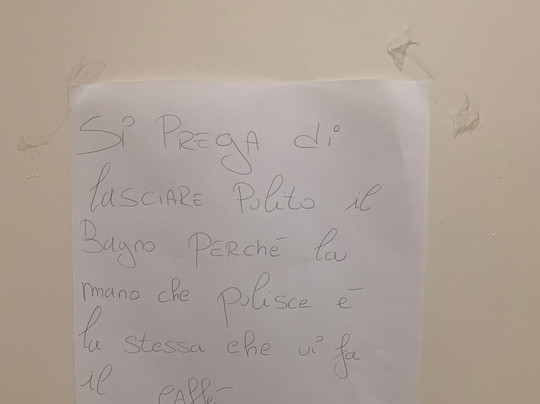 Si PREGA di
lASCIARE Pulito il
Bagno PERChé la
mano che pulisce é
la stessa che vi fa
il CAffé